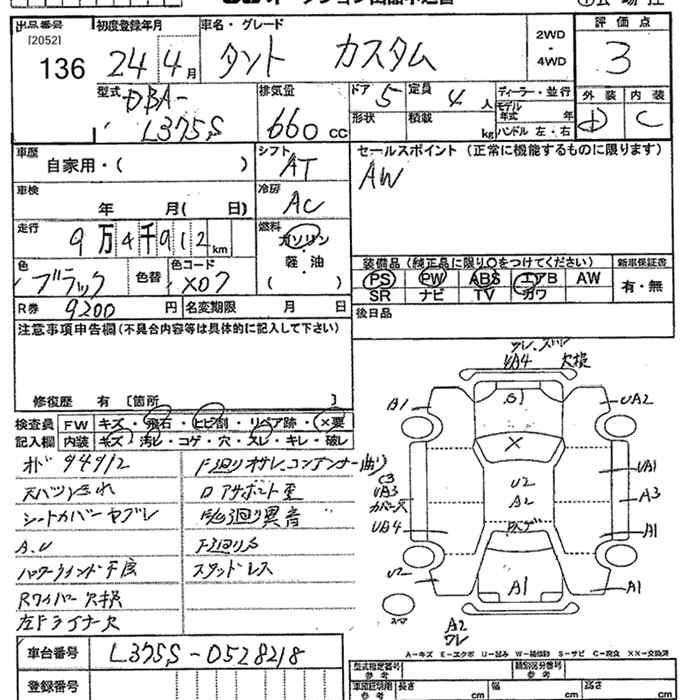 出品番号
[2052]
136
初度登録年月
24年4月
車名・グレード
タント カスタム
2WD
・
4WD
評価点
3
型式
DBA-
L375S
排気量
660 cc
ドア 5
定員 4人
形状
積載 kg
ディーラー・並行
モデル年式 年
ハンドル 左・右
外装 内装
D C
車歴 自家用・( )
シフト AT
セールスポイント (正常に機能するものに限ります)
AW
車検 年 月( 日)
冷房 AC
走行 9万4千912km
燃料 ガソリン
軽・油
( )
色 ブラック
色替
色コード X07
装備品 (純正品に限り○をつけてください) 新車保証書
PS PW ABS エアB AW
SR ナビ TV カワ
有・無
R券 9200円
名変期限 月 日
後日品
注意事項申告欄(不具合内容等は具体的に記入して下さい)
修復歴 有 〔箇所 〕
検査員記入欄
FW キズ・飛石・ヒビ割・リペア跡・×要
内装 キズ・汚レ・コゲ・穴・スレ・キレ・破レ
オド 94912
シートカバーヤブレ
A.U
パワーウインド不良
Rワイパー欠損
左Fライナー欠
ロアサポート歪
スタッドレス
UA4 欠損
A1
G1
UA2
X
U2
A2
C3
UA3
カバーズレ
UA4
UA1
A3
A1
U2
A1
A1
A2
ワレ
A-キズ E-エクボ U-凹み W-補修跡 S-サビ C-腐食 XX-交換済
車台番号 L375S-0528218
登録番号
型式指定番号
参考
類別区分番号
参考
車庫証明用
参考
長さ cm
幅 cm
高さ cm